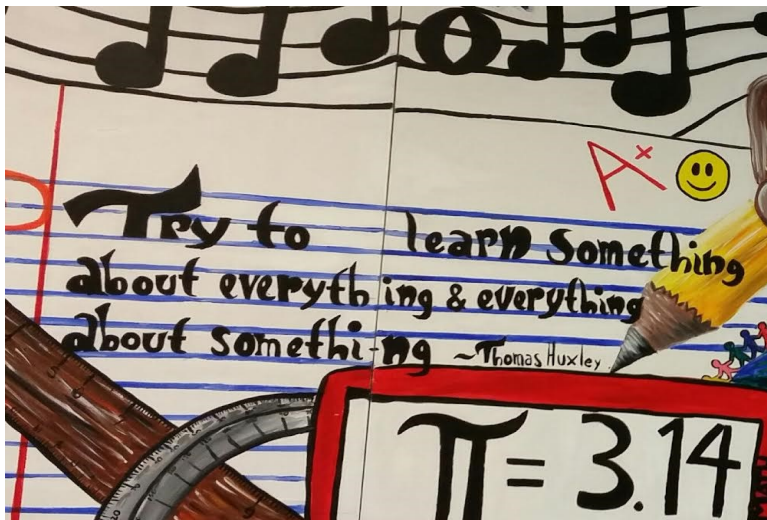 A+
Try to learn something
about everything & everything
about something ~Thomas Huxley
π = 3.14
20